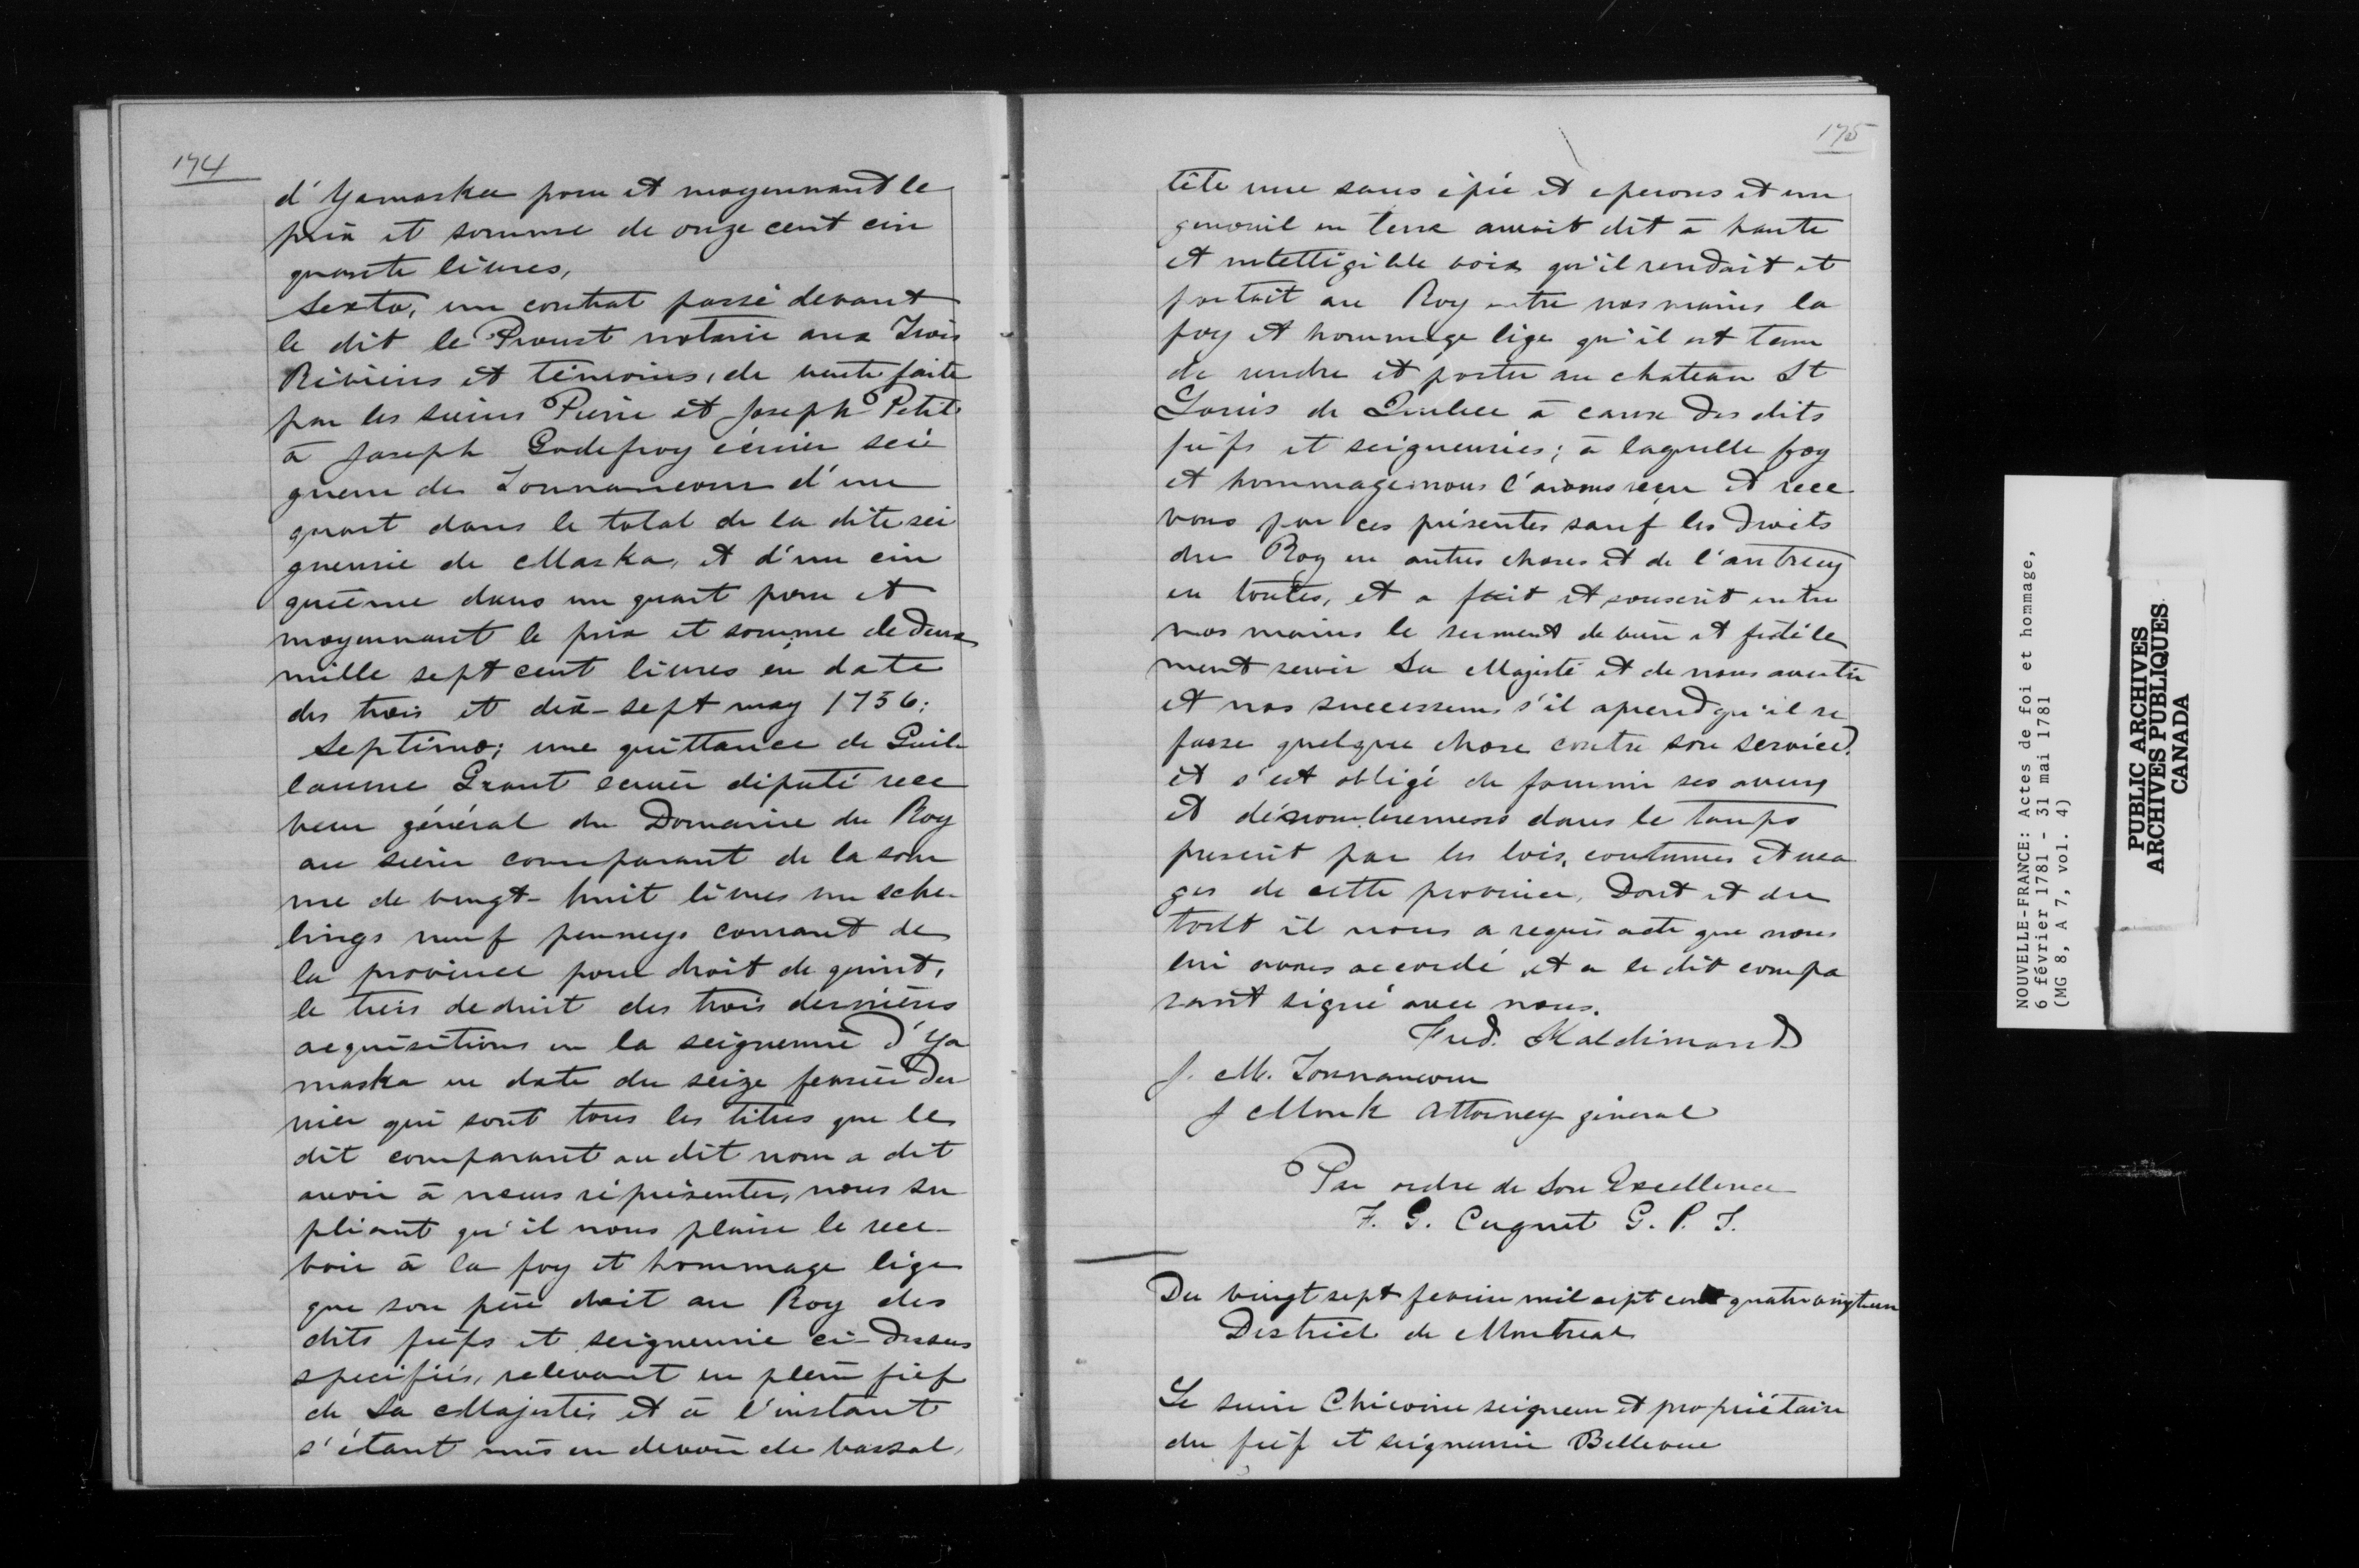 174
d'Yamaska pour et moyennant le
prix et somme de onze cent cin
quante livres,
Sexto, un contrat passé devant
le dit le Proust notaire aux Trois
Rivieres et témoins, de vente faite
par les sieurs Pierre et Joseph Petit
à Joseph Godefroy écuier sei
gneur de Tonnancour d'un
quart dans le total de la dite sei
gneurie de Maska, et d'un cin
quième dans un quart pour et
moyennant le prix et somme de deux
mille sept cent livres en date
des trois et dix-sept may 1756;
Septimo; une quittance de Guil-
laume Grant ecuier député rece
veur général du Domaine du Roy
au sieur comparant de la som
me de vingt-huit livres un sche-
lings neuf penneys courant de
la province pour droit de quint,
le tiers deduit des trois dernières
acquisitions en la seigneurie d'Ya
maska en date du seize fevrier der
nier qui sont tous les titres que le
dit comparant au dit nom a dit
avoir à nous réprésenter, nous su
pliant qu'il nous plaise le rece-
voir à la foy et hommage lige
que son père doit au Roy des
dits fiefs et seigneurie ci-dessus
specifiés, relevant en plein fief
de Sa Majestés et à l'instant
s'étant mis en devoir de vassal,
175
tête nue sans épée et eperons et un
genouil en terre auroit dit à haute
et intelligible voix qu'il rendait et
portait au Roy entre nos mains la
foy et hommage lige qu'il est tenu
de rendre et porter au chateau St
Louis de Quebec à cause des dits
fiefs et seigneuries; à laquelle foy
et hommage nous l'avons reçu et rece
vons par ces présentes sauf les droits
du Roy en autres choses et de l'autruy
en toutes, et a fait et souscrit entre
nos mains le serment de bien et fidéle
ment servir Sa Majesté et de nous avertir
et nos successeurs s'il aprend qu'il se
fasse quelque chose contre son service,
et s'est obligé de fournir ses aveux
et dénombremens dans le temps
prescrit par les lois, coutumes et usa
ges de cette province, Dont et du
tout il nous a requis acte que nous
lui avons accordé, et a le dit compa
rant signé avec nous.
Fred. Haldimand
J. M. Tonnancour
J Monk Attorney géneral
Par ordre de Son Excellence
F. G. Cugnet G. P. T.
Du vingt sept fevrier mil sept cent quatre vingt un
District de Montreal
Le sieur Chicoine seigneur et propriétaire
du fief et seigneurie Bellevue
NOUVELLE-FRANCE: Actes de foi et hommage,
6 février 1781 - 31 mai 1781
(MG 8, A 7, vol. 4)
PUBLIC ARCHIVES
ARCHIVES PUBLIQUES
CANADA